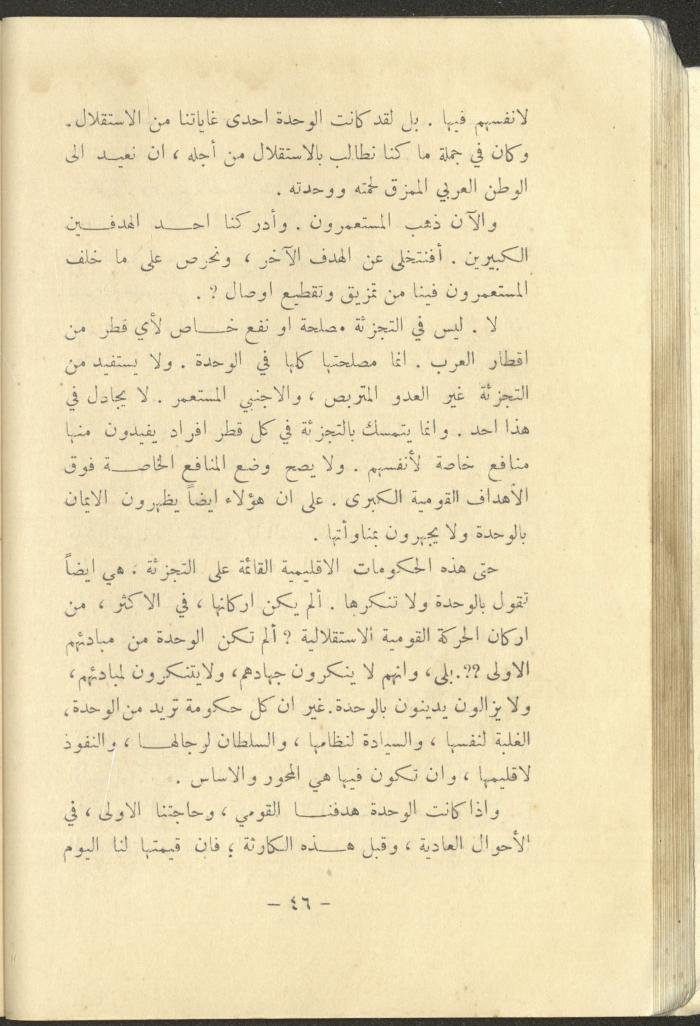 لانفسهم فيها . بل لقد كانت الوحدة احدى غاياتنا من الاستقلال.
وكان في جملة ما كنا نطالب بالاستقلال من أجله ، ان نعيد الى
الوطن العربي الممزق لحمته ووحدته .
والآن ذهب المستعمرون . وأدركنا احد الهدفين
الكبيرين . أفنتخلى عن الهدف الآخر ، ونحرص على ما خلف
المستعمرون فينا من تمزيق وتقطيع اوصال ? .
لا . ليس في التجزئة مصلحة او نفع خاص لأي قطر من
اقطار العرب . انما مصلحتها كلها في الوحدة . ولا يستفيد من
التجزئة غير العدو المتربص ، والاجنبي المستعمر . لا يجادل في
هذا احد . وانما يتمسك بالتجزئة في كل قطر افراد يفيدون منها
منافع خاصة لأنفسهم . ولا يصح وضع المنافع الخاصة فوق
الأهداف القومية الكبرى . على ان هؤلاء ايضاً يظهرون الايمان
بالوحدة ولا يجهرون بمناوأتها .
حتى هذه الحكومات الاقليمية القائمة على التجزئة . هي ايضاً
تقول بالوحدة ولا تنكرها . ألم يكن اركانها ، في الاكثر ، من
اركان الحركة القومية الاستقلالية ? ألم تكن الوحدة من مبادئهم
الاولى ??. بلى ، وانهم لا ينكرون جهادهم، ولايتنكرون لمبادئهم،
ولا يزالون يدينون بالوحدة.غير ان كل حكومة تريد من الوحدة،
الغلبة لنفسها ، والسيادة لنظامها ، والسلطان لرجالها ، والنفوذ
لاقليمها ، وان تكون فيها هي المحور والاساس .
واذا كانت الوحدة هدفنا القومي ، وحاجتنا الاولى ، في
الأحوال العادية ، وقبل هذه الكارثة ؛ فان قيمتها لنا اليوم
- ٤٦ -